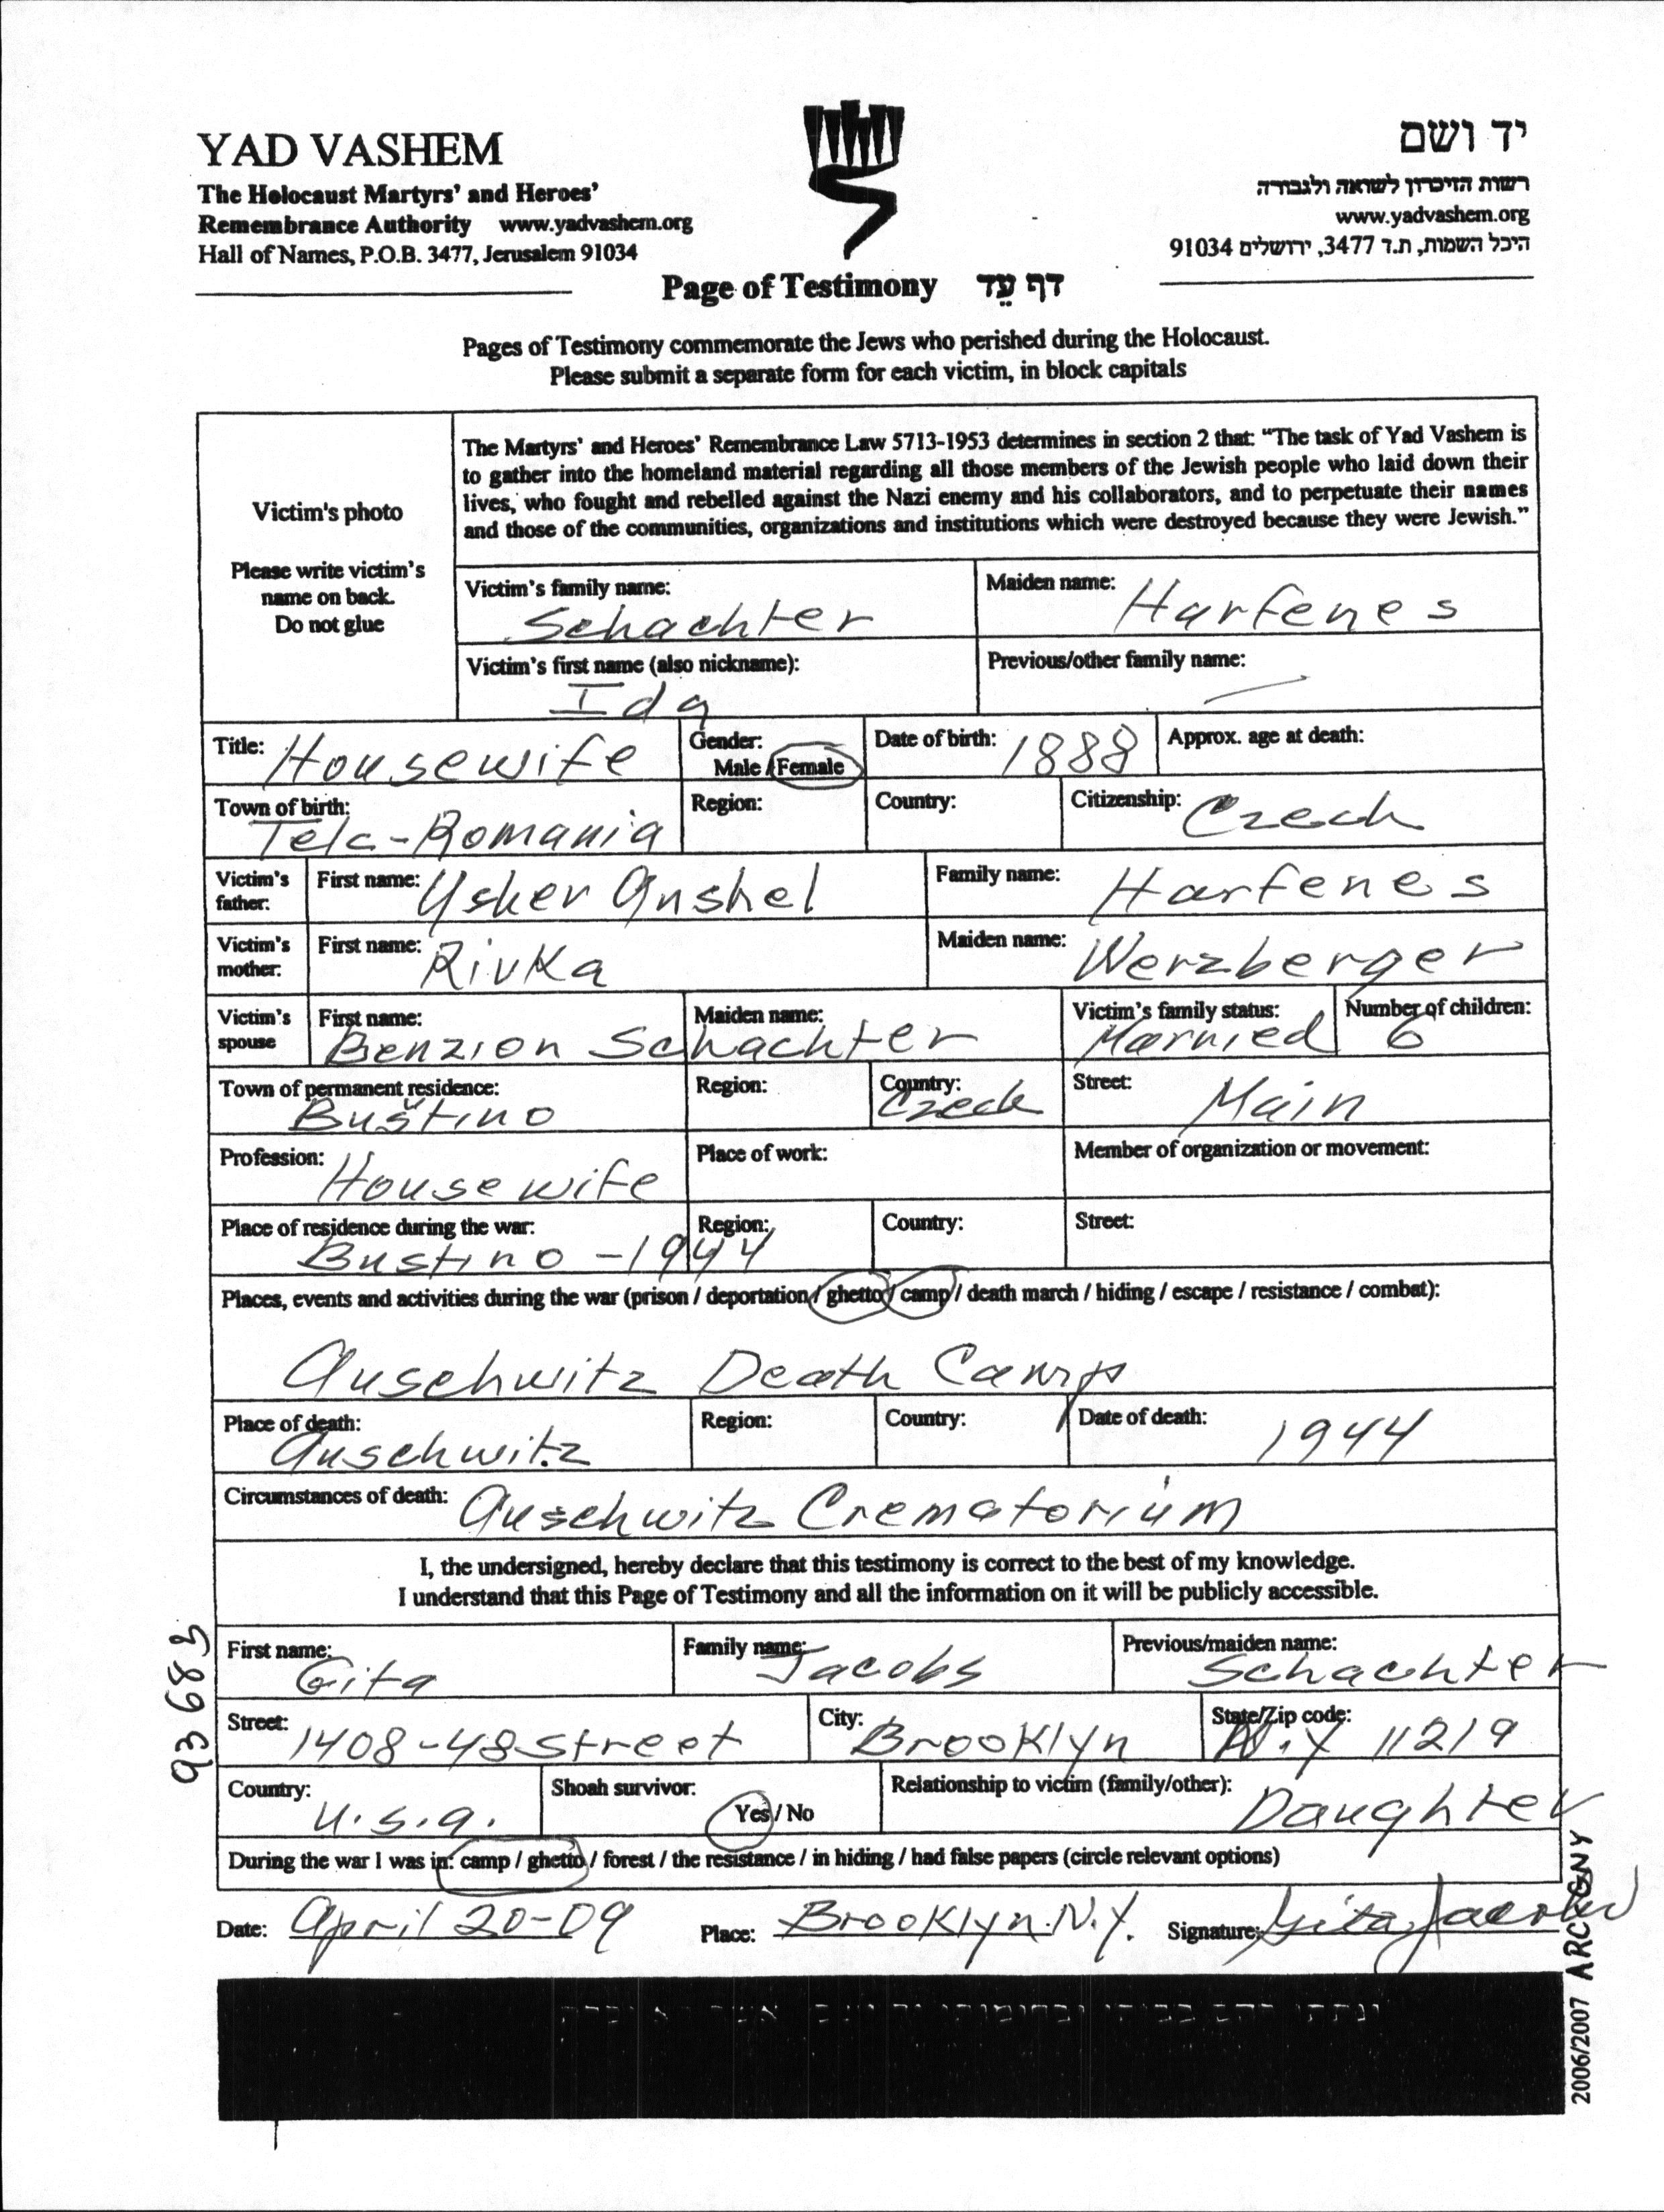 YAD VASHEM
The Holocaust Martyrs' and Heroes'
Remembrance Authority www.yadvashem.org
Hall of Names, P.O.B. 3477, Jerusalem 91034
יד ושם
רשות הזיכרון לשואה ולגבורה
www.yadvashem.org
היכל השמות, ת.ד 3477, ירושלים 91034
Page of Testimony דף עֵד
Pages of Testimony commemorate the Jews who perished during the Holocaust.
Please submit a separate form for each victim, in block capitals
Victim's photo
Please write victim's
name on back.
Do not glue
The Martyrs' and Heroes' Remembrance Law 5713-1953 determines in section 2 that: "The task of Yad Vashem is
to gather into the homeland material regarding all those members of the Jewish people who laid down their
lives, who fought and rebelled against the Nazi enemy and his collaborators, and to perpetuate their names
and those of the communities, organizations and institutions which were destroyed because they were Jewish."
Victim's family name: Schachter
Maiden name: Harfenes
Victim's first name (also nickname): Ida
Previous/other family name: —
Title: Housewife
Gender: Male / Female
Date of birth: 1888
Approx. age at death:
Town of birth: Telc-Romania
Region:
Country:
Citizenship: Czech
Victim's father: First name: Usher Anshel
Family name: Harfenes
Victim's mother: First name: Rivka
Maiden name: Werzberger
Victim's spouse First name: Benzion Schachter
Maiden name:
Victim's family status: Married
Number of children: 6
Town of permanent residence: Buština
Region:
Country: Czech
Street: Main
Profession: Housewife
Place of work:
Member of organization or movement:
Place of residence during the war: Bustino - 1944
Region:
Country:
Street:
Places, events and activities during the war (prison / deportation / ghetto / camp / death march / hiding / escape / resistance / combat):
Auschwitz Death Camp
Place of death: Auschwitz
Region:
Country:
Date of death: 1944
Circumstances of death: Auschwitz Crematorium
I, the undersigned, hereby declare that this testimony is correct to the best of my knowledge.
I understand that this Page of Testimony and all the information on it will be publicly accessible.
First name: Gita
Family name: Jacobs
Previous/maiden name: Schachter
Street: 1408-48 Street
City: Brooklyn
State/Zip code: N.Y 11219
Country: U.S.A.
Shoah survivor: Yes / No
Relationship to victim (family/other): Daughter
During the war I was in: camp / ghetto / forest / the resistance / in hiding / had false papers (circle relevant options)
Date: April 20-09 Place: Brooklyn N.Y. Signature: Gita Jacobs
93683
2006/2007 ARC GNY